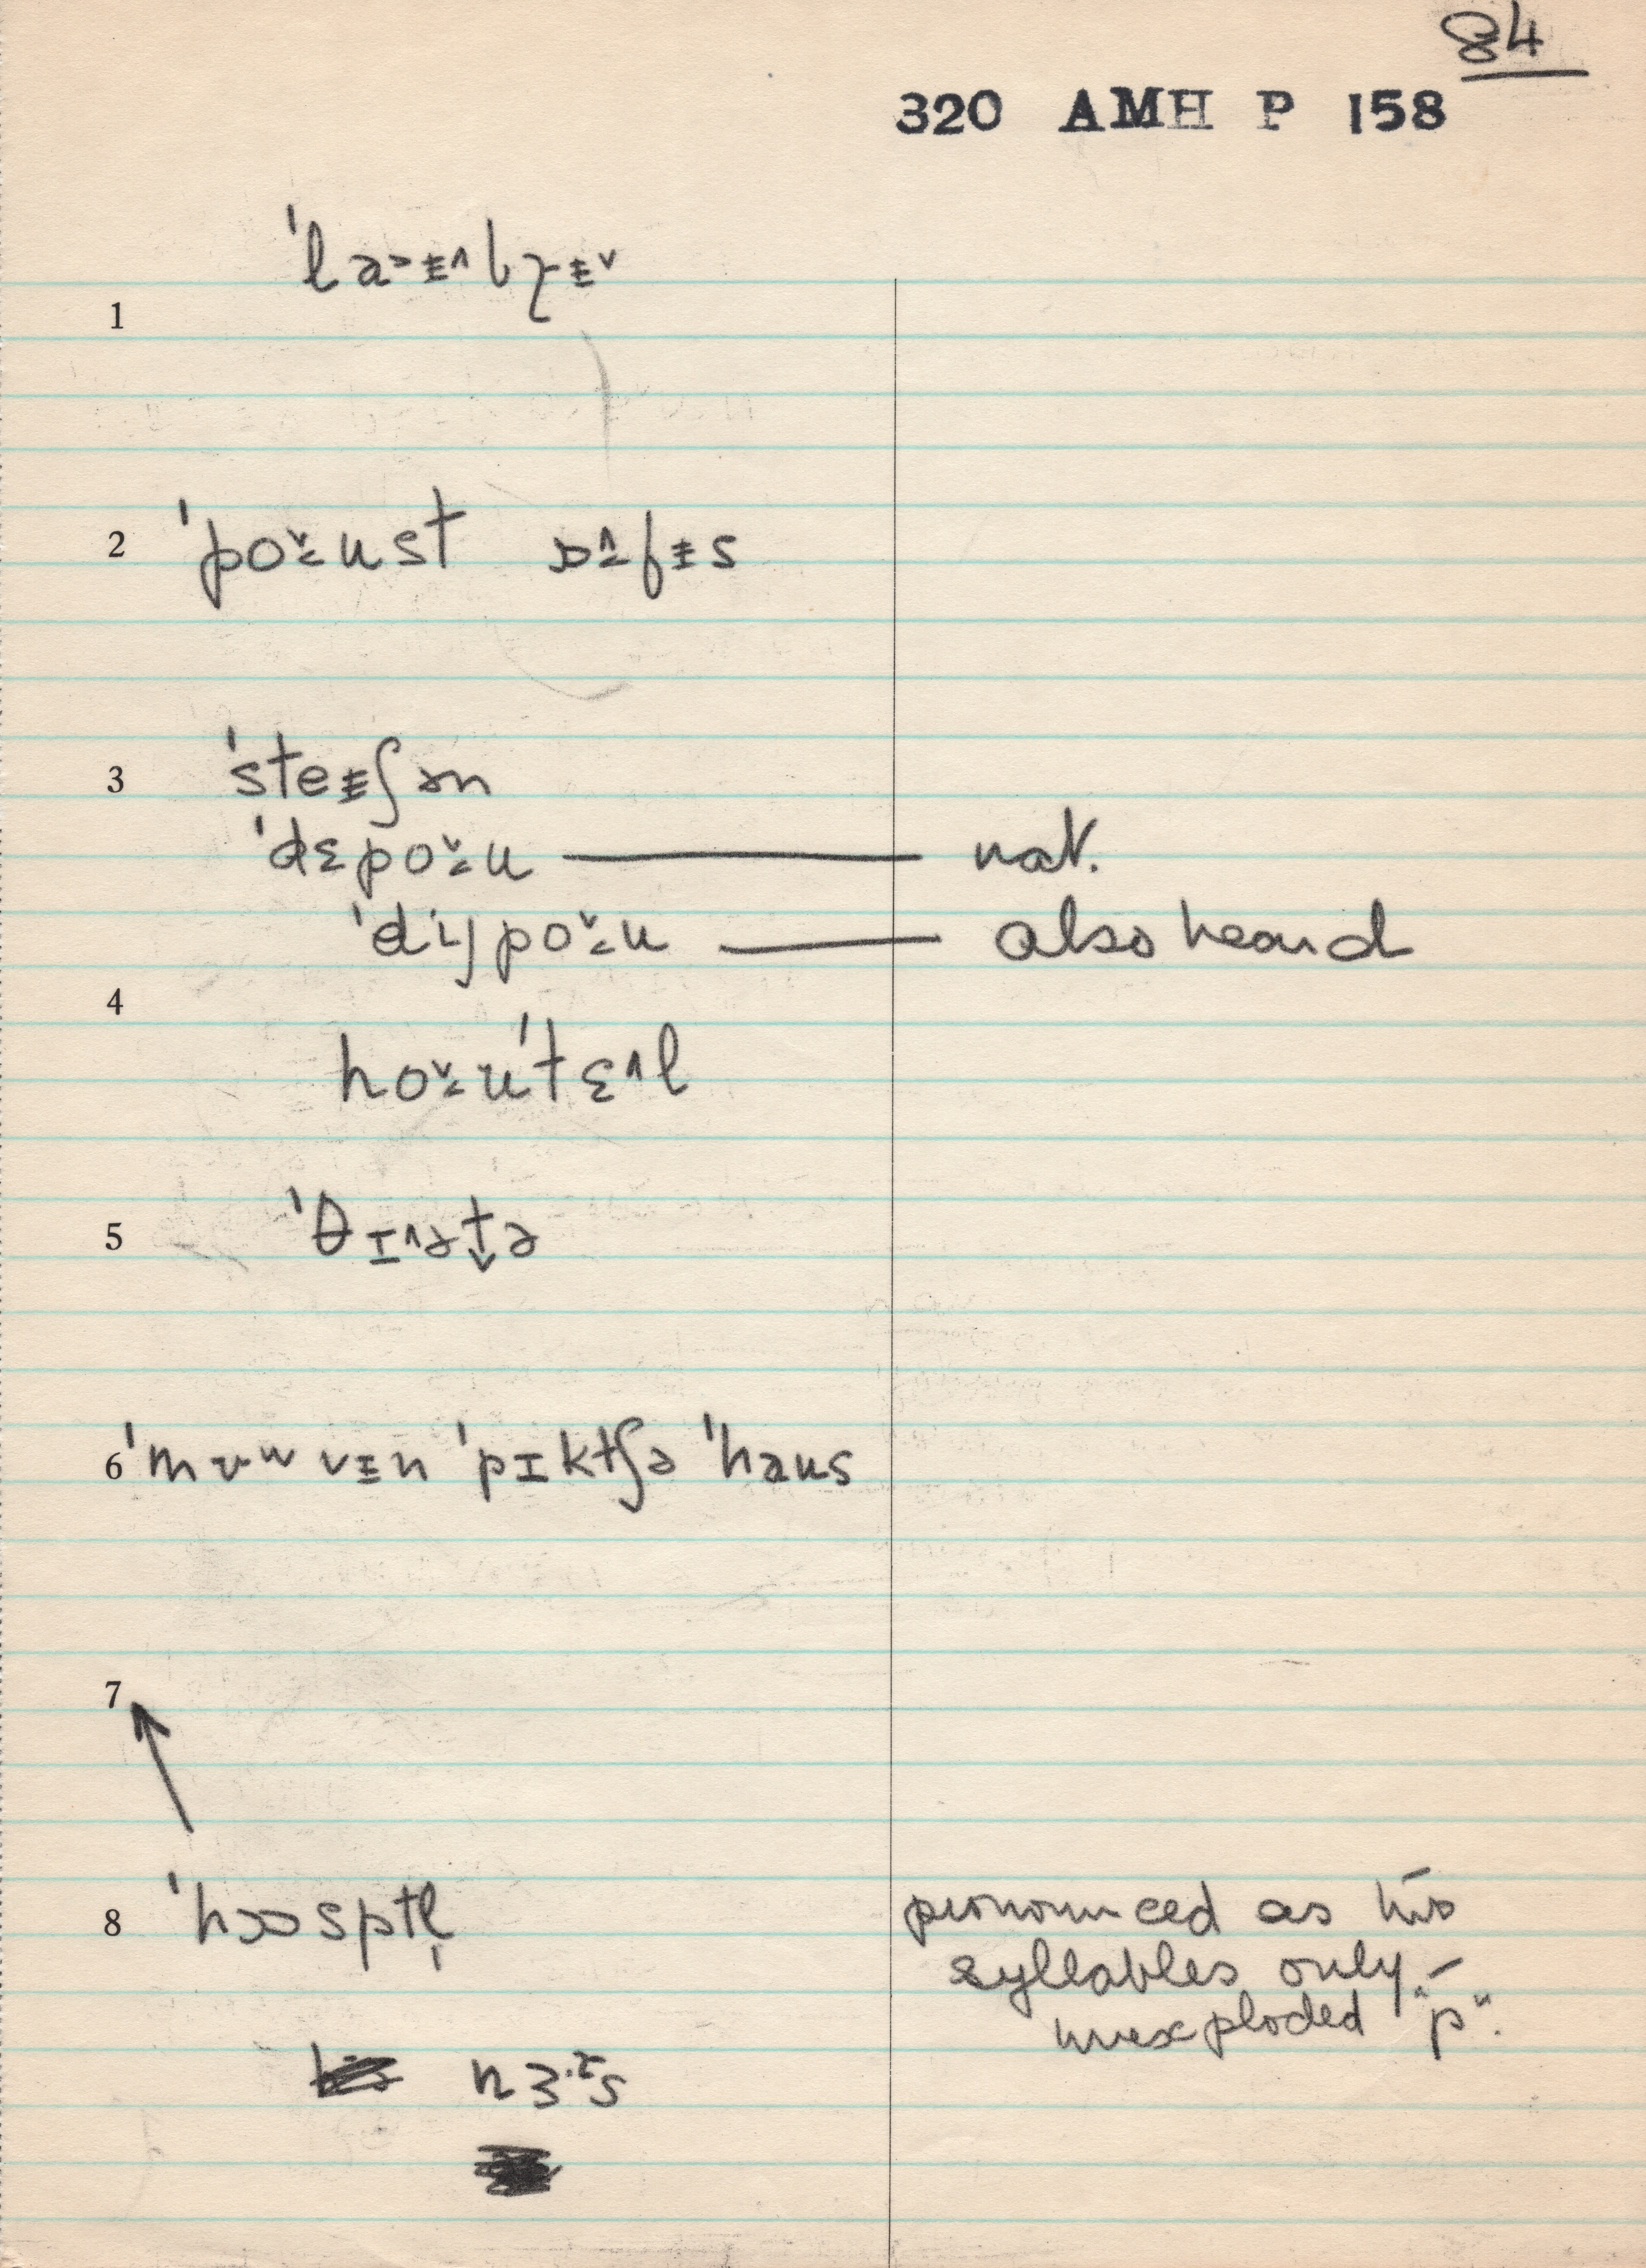 84
320 AMH P 158
1 ˈla˃ɨ˄bɽɨ˅
2 ˈpo˅̵ust ɒ˄̵fɨs
3 ˈsteɨʃən
ˈdɛpo˅̵u — nat.
ˈdijpo˅̵u — also heard
4
ho˅̵uˈtɛ˄l
5 ˈθɪ˄ət̬ə
6 ˈmʊʷvɨn ˈpɪktʃə ˈhaus
7
8 ˈhɔɒsptl̩ pronounced as two
syllables only –
unexploded "p".
nɜ·ɪs